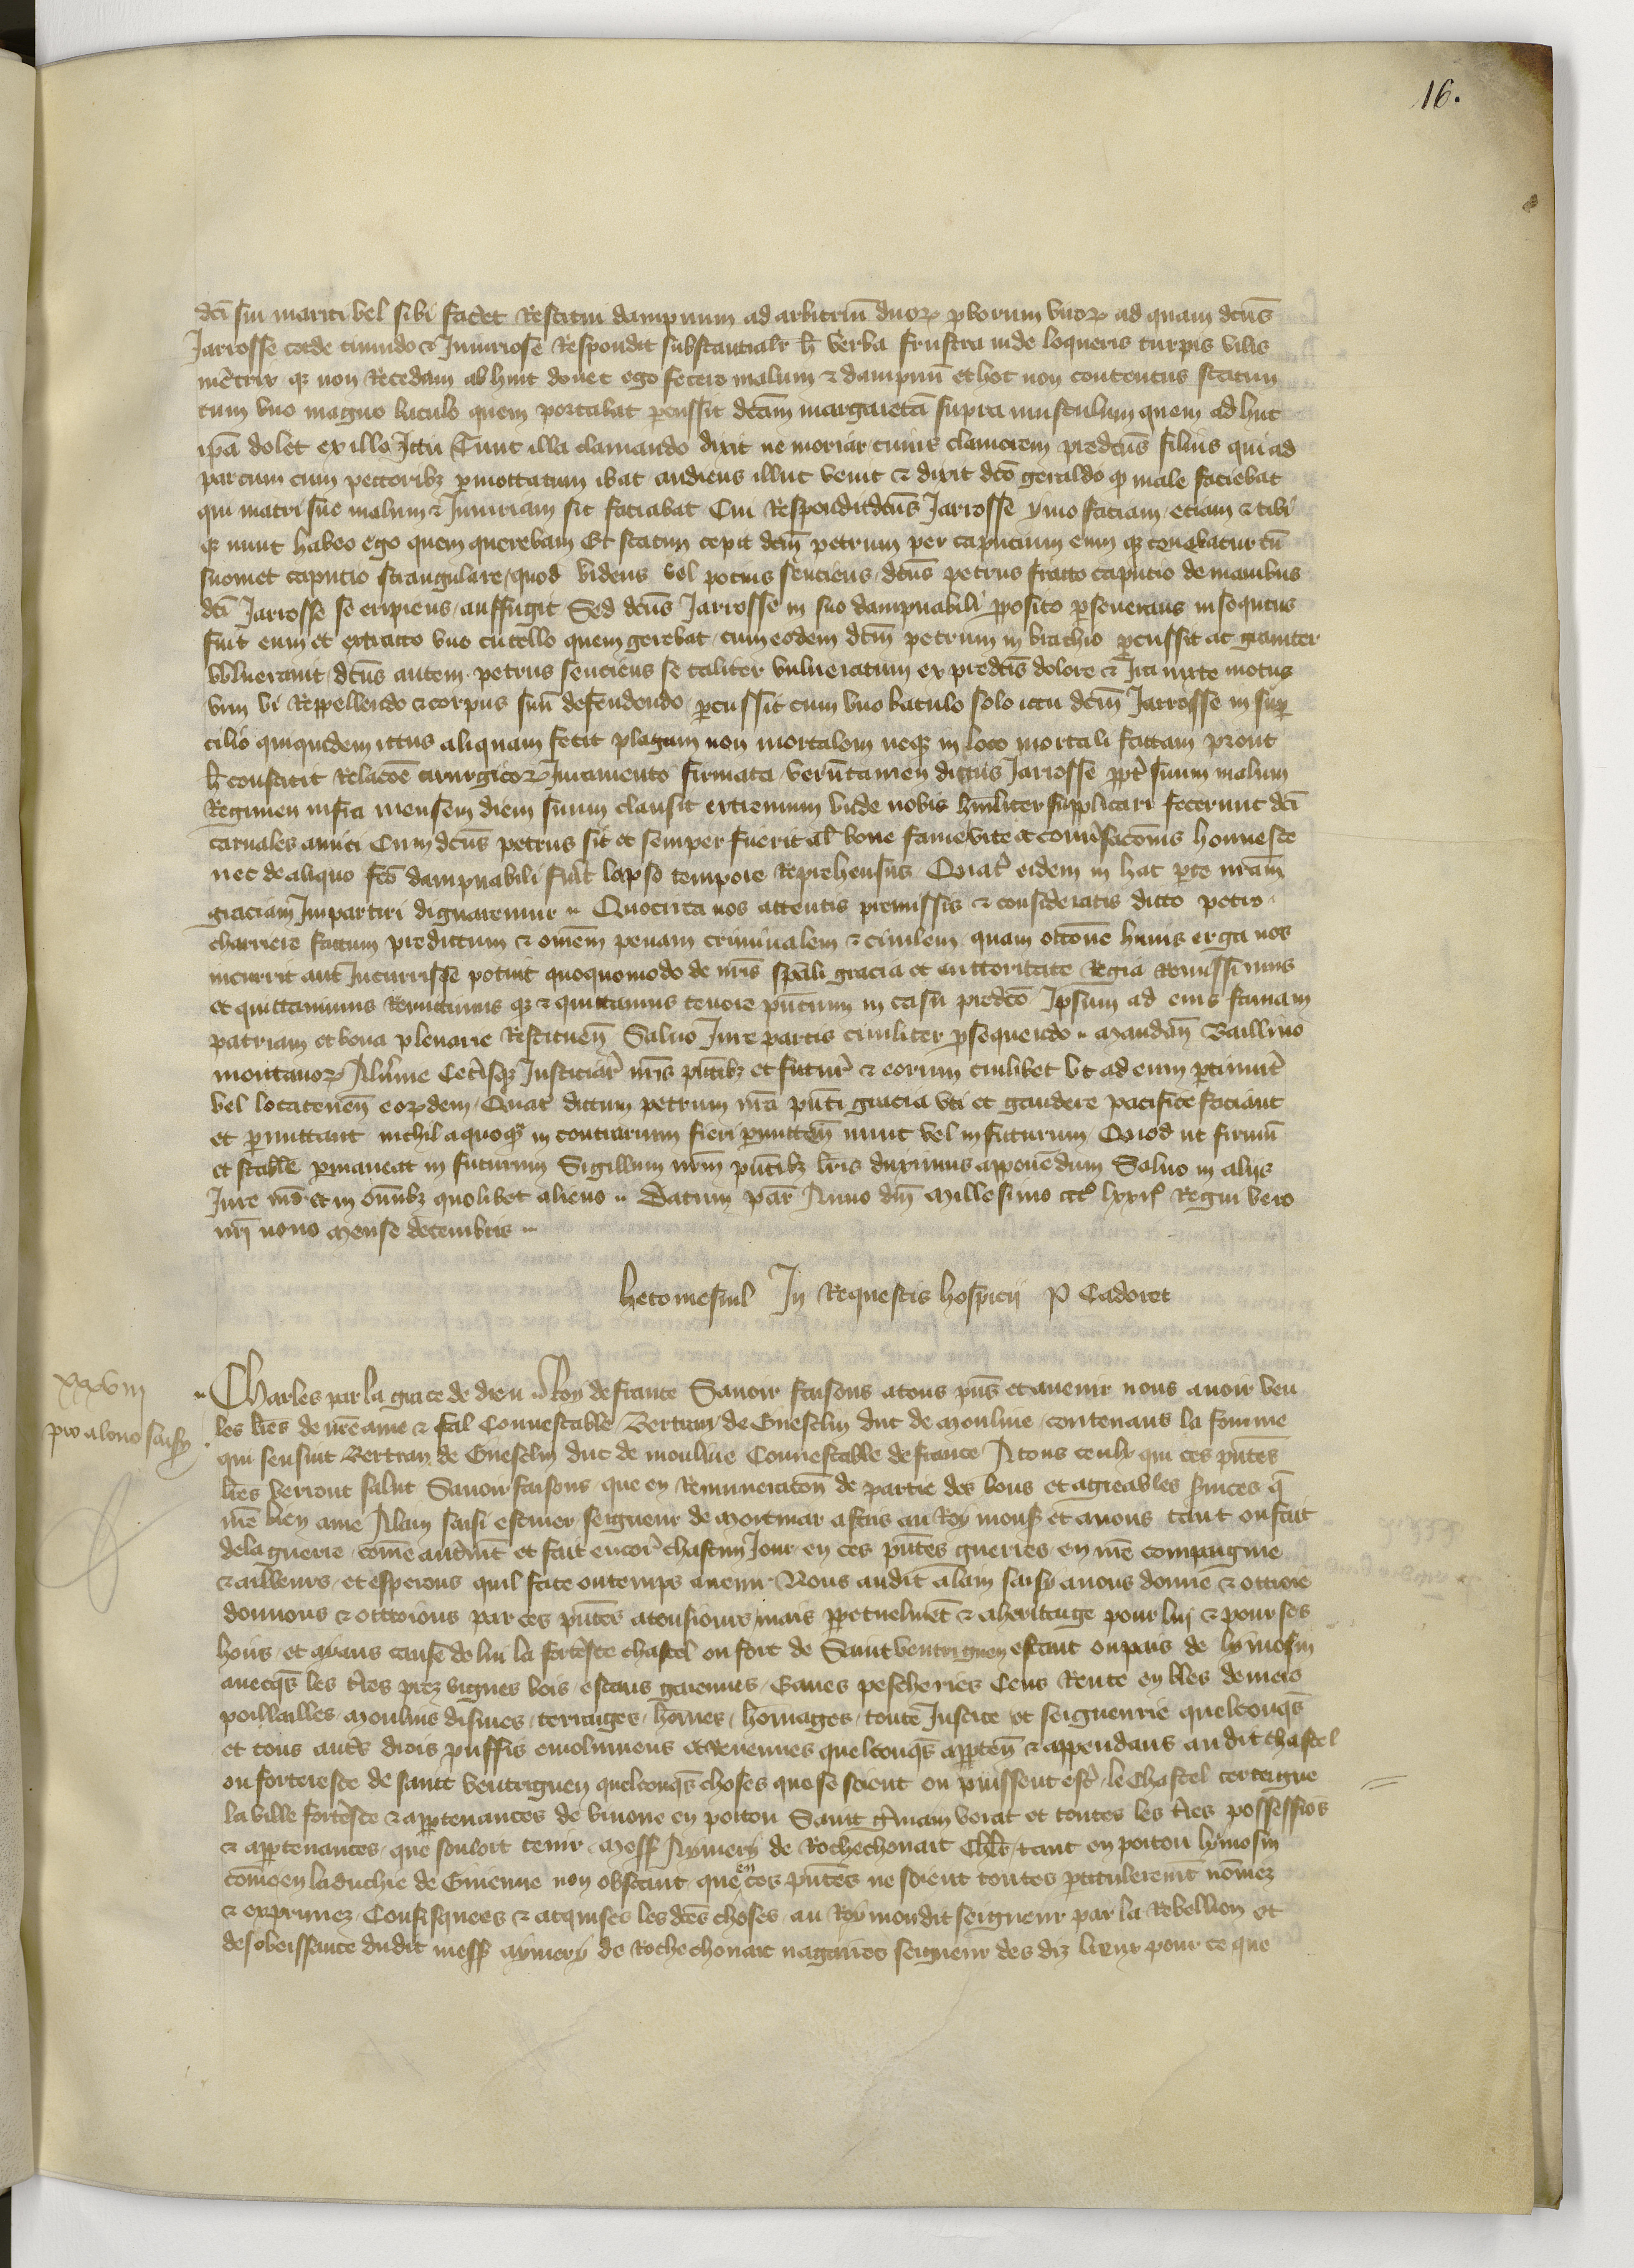 16.
dci sui mariti vel sibi faceret Restitui dampnum ad arbitriu duor pborum viror ad quam dcus
Jarrosse corde timido et Iniuriose Respondit substantialr hec verba frustra inde loqueris turpis vilis
meretrix qz non Recedam ab hinc donec ego fecero malum et dampnu et hoc non contentus statim
cum uno magno baculo quem portabat percussit dcam margaretam supra musculum quem adhuc
ipa dolet ex illo Ictu Tunc illa clamando dixit ne moriar cuius clamorem predcus filius qui ad
parcum cum pectoribz p mottatum ibat audiens illuc venit et dixit dco geraldo qp male faciebat
qui matri sue malum et Iniuriam sic faciebat Cui Respondit dcus Jarrosse ymo faciam etiam et tibi
qz nunc habeo ego quem querebam Et statim cepit dcm petrum per capucium eum qz conabatur cu
suomet caputio strangulare quod videns vel potius senciens dcus petrus fracto caputio de manibus
dci Jarrosse se eripiens auffugit Sed dcus Jarrosse in suo dampnabili proposito perseverans insequtus
fuit eum et extracto uno cutello quem gerebat cum eodem dcm petrum in brachio percussit ac graviter
vulneravit dcus autem petrus senciens se taliter vulneratum ex predcis dolore et Ira iuste motus
vim vi Reppellendo et corpus suu defendendo percussit cum uno baculo solo ictu dcm Jarrosse in super
cilio qui quidem ictus aliquam fecit plagam non mortalem neqz in loco mortali factam prout
hec constitit Relacoe cirurgicor Iuramento firmata verutamen dictus Jarrosse ppter suum malum
Regimen infra mensem diem suum clausit extremum unde nobis humiliter supplicari fecerunt dci
carnales amici Cum dcus petrus sit et semper fuerit al bone fame vite et conversaconis honneste
nec de aliquo fco dampnabili fuit lapso tempore Reprehensus Quat eidem in hac parte nram
graciam Impartiri dignaremur Quocirca nos attentis premissis et consideratis dicto petro
charriere factum predictum et omem penam criminalem et civilem quam occone huius erga nos
incurrit aut Incurrisse potuit quoquomodo de nris spali gracia et auctoritate Regia Remissimus
et quittavimus Remittimus qz et quittamus tenore pntium in casu predco Ipsum ad eius famam
patriam et bona plenarie Restituen Salvo Iure partis civiliter psequendo Mandan Baillivo
montanor Alvernie Cetisqz Iusticiar nris pntibz et futur et eorum cuilibet ut ad eum pertinuit
vel locatenen eordem Quat dictum petrum nra pnti gracia uti et gaudere pacifice faciant
et permittant nichil a quoqz in contrarium fieri permitten nunc vel in futurum Quod ut firmu
et stabile permaneat in futurum Sigillum nrm pntibz lris duximus apponedum Salvo in aliis
Iure nro et in omibz quolibet alieno Datum par Anno dni Millesimo ccco lxxiio Regni vero
nri nono Mense decembris
hetomesnil In Requestis hospicii P Cadoret
xxxviii
pro alono saisy
Charles par la grace de dieu Roy de france Savoir faisons a tous pns et avenir nous avoir veu
les lres de nre ame et feal Connestable Bertran de Gueselin duc de Mouline contenans la fourme
qui sensuit Bertran de Gueselin duc de mouline Connestable de france A tous ceulx qui ces pntes
lres verront salut Savoir faisons que en Remuneracon de partie des bons et agreables services q
nre bien ame Alain saisi escuier seigneur de Mortmar a fais au Roy mons et a nous tant ou fait
de la guerre come autremt et fait encor chascun Jour en ces pntes guerres en nre compaignie
et ailleurs et esperons quil face ou temps avenir Nous audit alain saisy avons donne et ottroie
donnons et ottroions par ces pntes a tousiours mais perpetuelment et a heritage pour lui et pour ses
hoirs et aians cause de lui la forteresce chastel ou fort de Saint ventriguen estant ou pais de lymosin
avecqs les tres prez vignes bois estans garennes Eaues pescheries Cens Rente en bles deniers
poillailles Moulins dismes terrages homes homages toute Justice et seigneurie quelconqs
et tous autres drois prouffis emolumens et revenues quelconqs apparten et appendans audit chastel
ou forteresce de saint ventriguen quelconqs choses que se soient ou puissent estr le Chastel certeigne
la ville forteresce et appartenances de vivone en poitou Saint germain vorat et toutes les tres possessios
et appartenances que souloit tenir Mess Aymery de Rochechouart Chlr tant en poitou lymosin
come en la duchie de Guienne non obstant que en ces pntes ne soient toutes particulerement nomez
et exprimez Confisquees et acquises les dces choses au Roy mondit seigneur par la Rebellion et
desobeissance dudit mess aymery de Rochechouart nagaires seigneur des diz lieux pour ce que